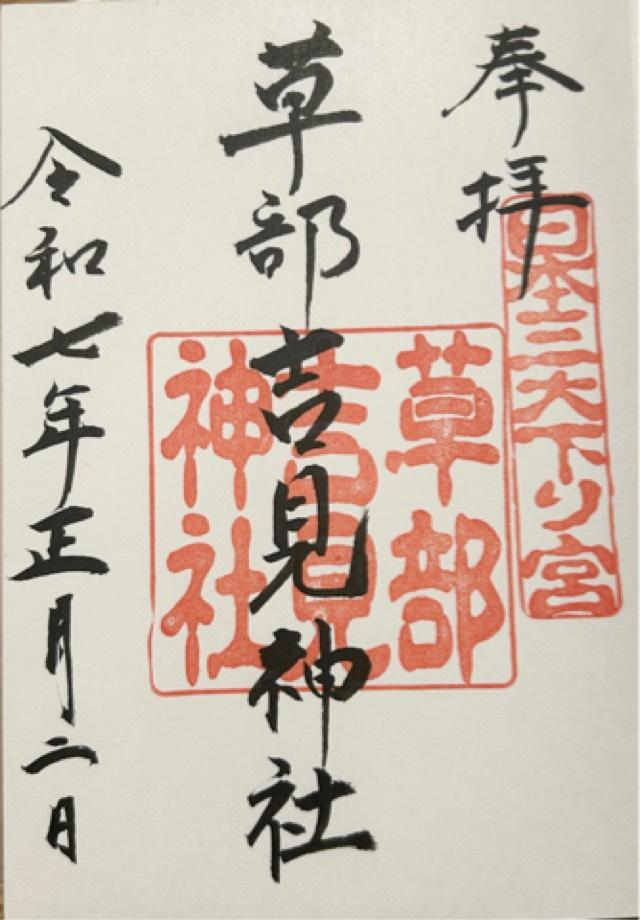 奉拝
日本三大下り宮
草部吉見神社
草部
吉見
神社
令和七年正月二日